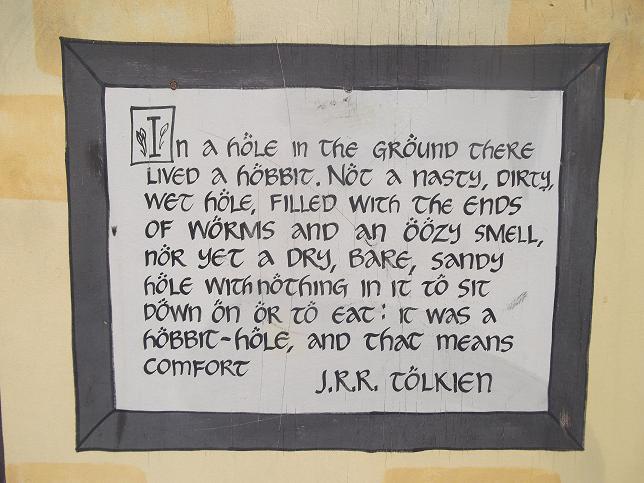 In a höle in the gröund there
lived a höbbit. Nöt a nasty, dirty,
wet höle, filled with the ends
of wörms and an öözy smell,
nör yet a dry, bare, sandy
höle with nöthing in it tö sit
döwn ön ör tö eat: it was a
höbbit-höle, and that means
comfort
J.R.R. Tölkien